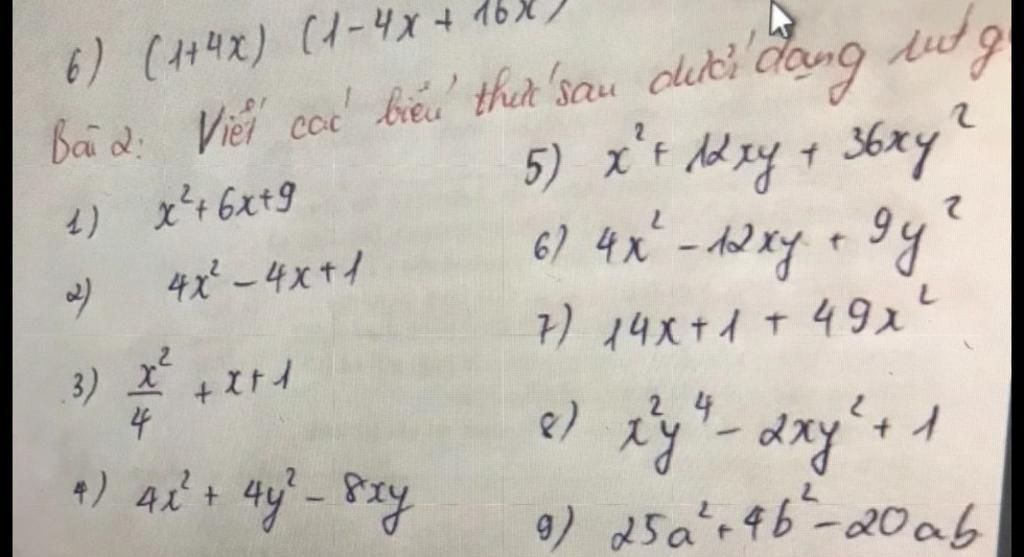 6) (1+4x) (1-4x + 16x)
Bài 2: Viết các biểu thức sau dưới dạng rút g
1) x²+6x+9
2) 4x² - 4x+1
3) x²/4 + x+1
4) 4x² + 4y² - 8xy
5) x² + 12xy + 36xy²
6) 4x² - 12xy + 9y²
7) 14x+1 + 49x²
8) x²y⁴ - 2xy² + 1
9) 25a² + 4b² - 20ab